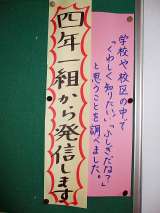 学校や校区の中で
「くわしく知りたい」「ふしぎだな?」
と思うことを調べました。
四年一組から発信します